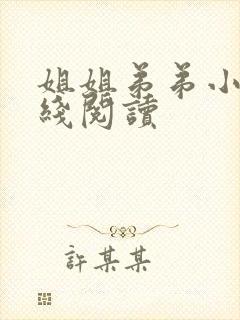 姐姐弟弟小
綫閱讀
許某某